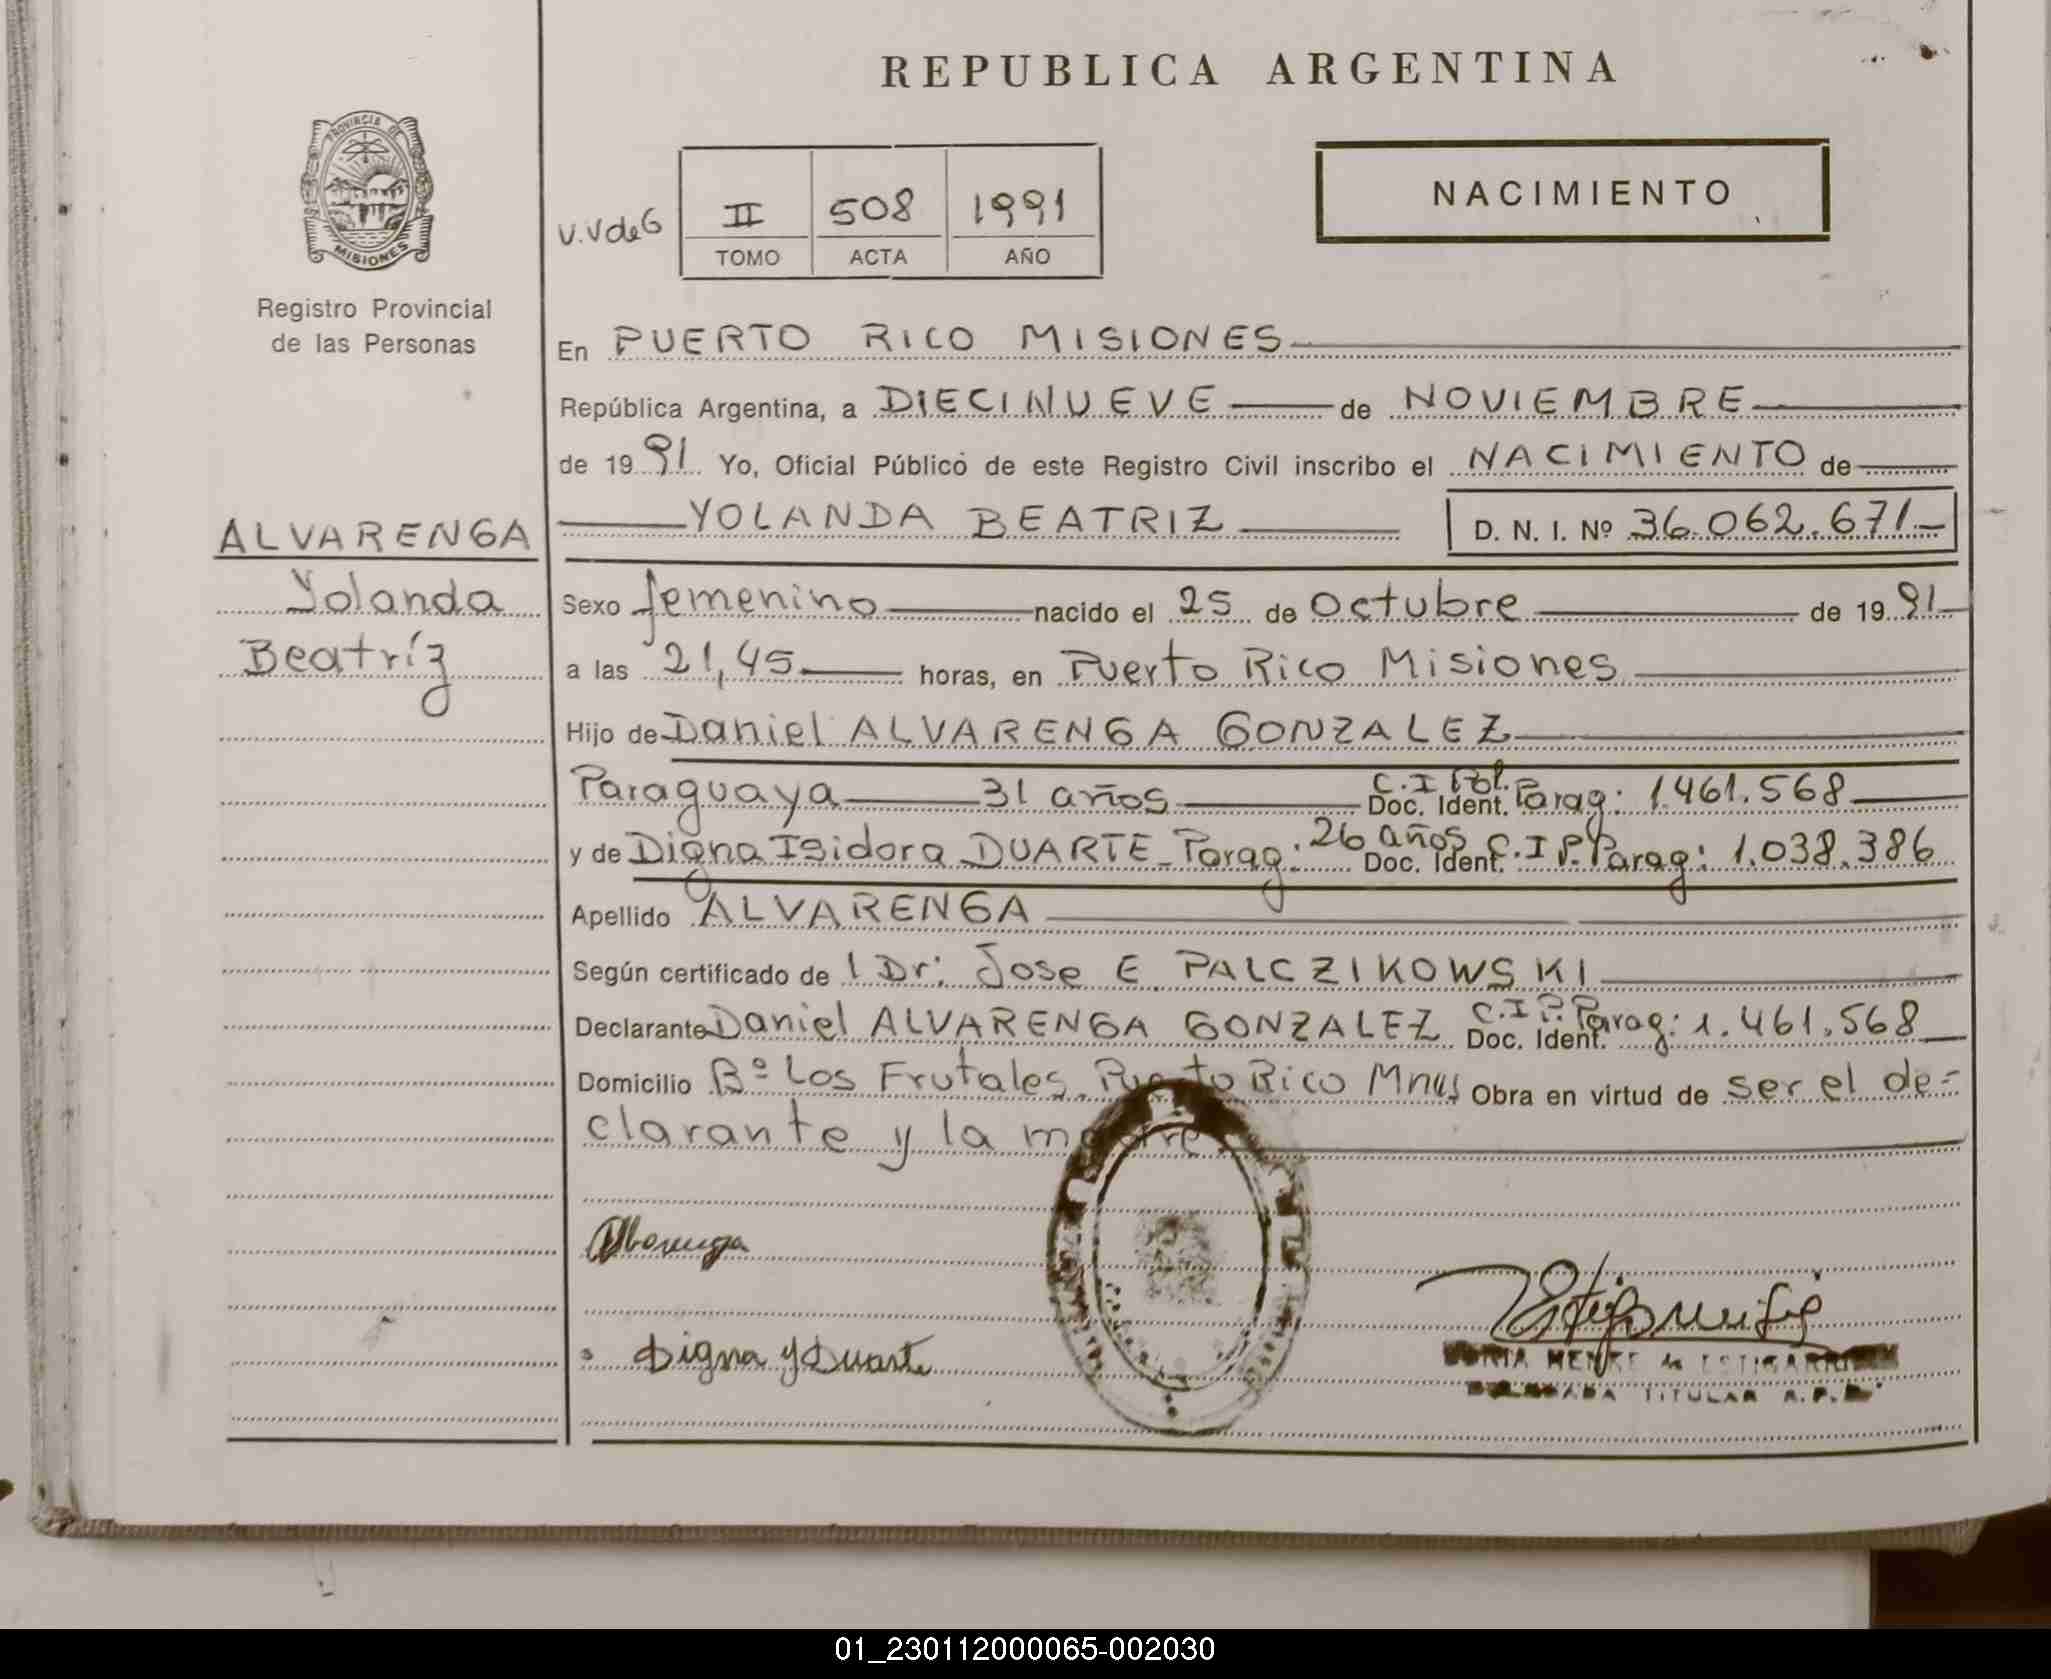 REPUBLICA ARGENTINA
PROVINCIA DE
MISIONES
Registro Provincial
de las Personas
V.V de G
II 508 1991
TOMO ACTA AÑO
NACIMIENTO
En PUERTO RICO MISIONES
República Argentina, a DIECINUEVE de NOVIEMBRE
de 1991 Yo, Oficial Público de este Registro Civil inscribo el NACIMIENTO de
YOLANDA BEATRIZ D. N. I. Nº 36.062.671.-
ALVARENGA
Yolanda
Beatríz
Sexo femenino nacido el 25 de Octubre de 1991
a las 21,45 horas, en Puerto Rico Misiones
Hijo de Daniel ALVARENGA GONZALEZ
Paraguaya 31 años C.I Pol. Doc. Ident. Parag: 1.461.568
y de Digna Isidora DUARTE - Parag: 26 años Doc. Ident. C.I P. Parag: 1.038.386
Apellido ALVARENGA
Según certificado de l Dr: Jose E. PALCZIKOWSKI
Declarante Daniel ALVARENGA GONZALEZ C.I P. Doc. Ident. Parag: 1.461.568
Domicilio Bº Los Frutales. Puerto Rico Mnes Obra en virtud de ser el de-
clarante y la madre
Digna y Duarte
TITULAR
01_230112000065-002030